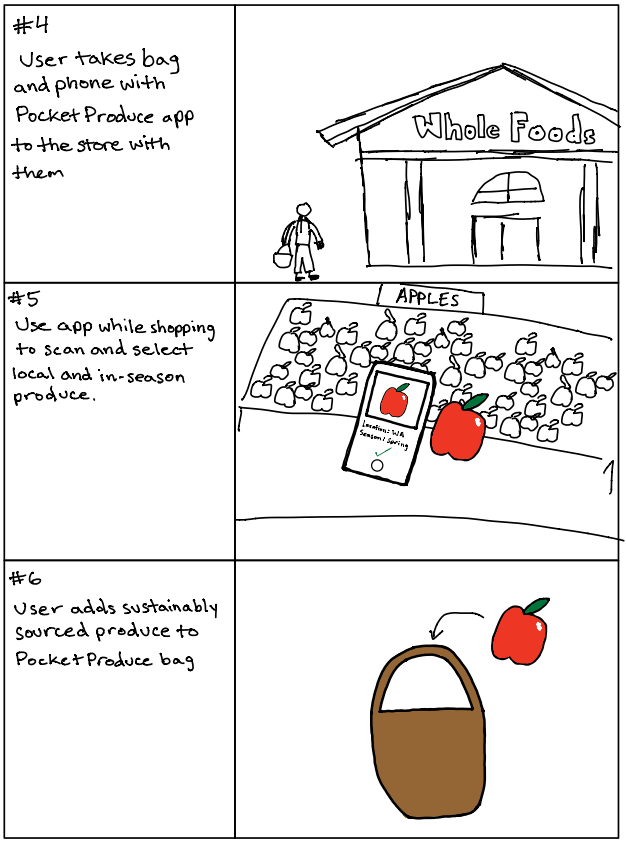 #4
User takes bag
and phone with
Pocket Produce app
to the store with
them
Whole Foods
#5
Use app while shopping
to scan and select
local and in-season
produce.
APPLES
Location: WA
Season: Spring
#6
User adds sustainably
sourced produce to
Pocket Produce bag